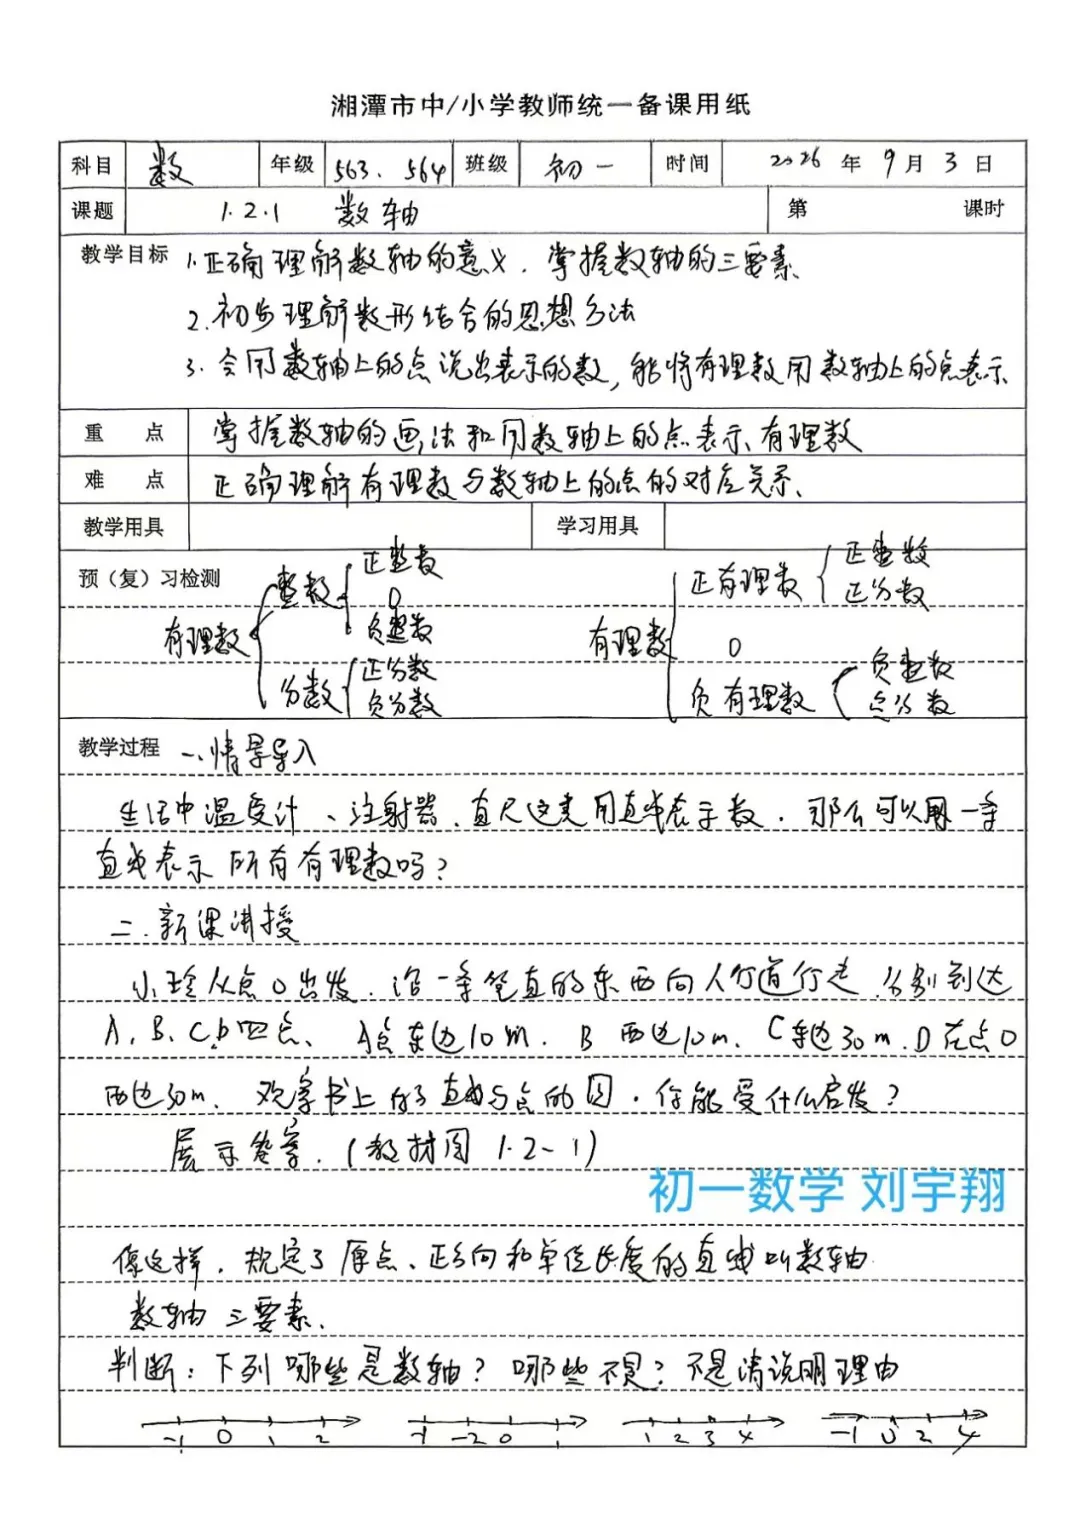 湘潭市中/小学教师统一备课用纸
科目 数 年级 563、564 班级 初一 时间 2026年9月3日
课题 1.2.1 数轴 第 课时
教学目标 1.正确理解数轴的意义，掌握数轴的三要素
2.初步理解数形结合的思想方法
3.会用数轴上的点说出表示的数，能将有理数用数轴上的点表示
重点 掌握数轴的画法和用数轴上的点表示有理数
难点 正确理解有理数与数轴上的点的对应关系、
教学用具 学习用具
预（复）习检测
有理数 整数 正整数 0 负整数
分数 正分数 负分数
有理数 正有理数 正整数 正分数
0
负有理数 负整数 负分数
教学过程 一、情景导入
生活中温度计、注射器、直尺这类用直线表示数．那么可以用一条
直线表示所有有理数吗？
二．新课讲授
小玲从点O出发．沿一条笔直的东西向人行道行走．分别到达
A、B、C、D四点、A点东边10m．B西边10m、C东边30m．D在点O
西边30m．观察书上的直线与点的图．你能受什么启发？
展示答案．(教材图1.2-1)
初一数学 刘宇翔
像这样，规定了原点、正方向和单位长度的直线叫数轴
数轴三要素．
判断：下列哪些是数轴？哪些不是？不是请说明理由
-1 0 1 2 -1 -2 0 1 1 2 3 4 -1 0 2 4